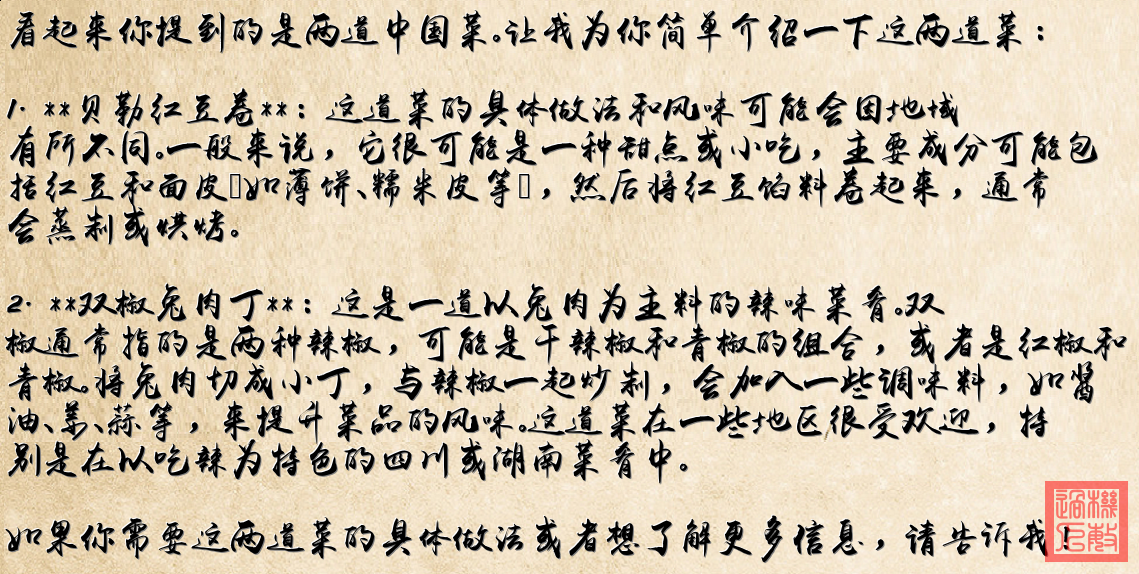 看起来你提到的是两道中国菜。让我为你简单介绍一下这两道菜：
1. **贝勒红豆卷**：这道菜的具体做法和风味可能会因地域
有所不同。一般来说，它很可能是一种甜点或小吃，主要成分可能包
括红豆和面皮▯如薄饼、糯米皮等▯，然后将红豆馅料卷起来，通常
会蒸制或烘烤。
2. **双椒兔肉丁**：这是一道以兔肉为主料的辣味菜肴。双
椒通常指的是两种辣椒，可能是干辣椒和青椒的组合，或者是红椒和
青椒。将兔肉切成小丁，与辣椒一起炒制，会加入一些调味料，如酱
油、姜、蒜等，来提升菜品的风味。这道菜在一些地区很受欢迎，特
别是在以吃辣为特色的四川或湖南菜肴中。
如果你需要这两道菜的具体做法或者想了解更多信息，请告诉我！